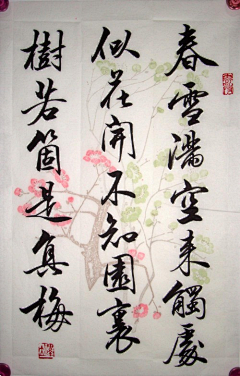 春雪滿空来觸處
似花開不知園裏
樹若箇是真梅